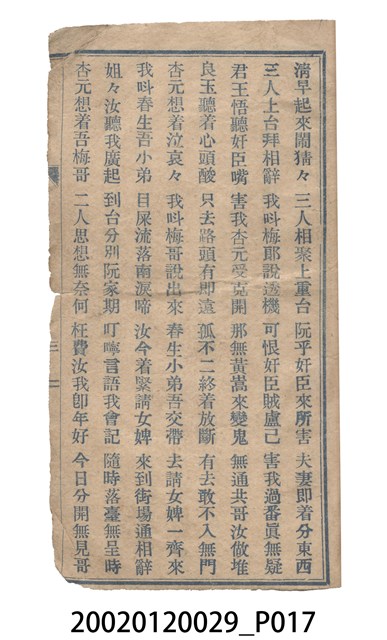 淸早起來鬧猜々　三人相聚上重台　阮乎奸臣來所害　夫妻即着分東西
三人上台拜相辭　我叫梅郎說透機　可恨奸臣賊盧己　害我過番眞無疑
君王悟聽奸臣嘴　害我杏元受克開　那無黃嵩來變鬼　無通共哥汝做堆
良玉聽着心頭酸　只去路頭有即遠　孤不二終着放斷　有去敢不入無門
杏元想着泣哀々　我叫梅哥說出來　春生小弟吾交帶　去請女婢一齊來
我叫春生吾小弟　目屎流落南淚啼　汝今着緊請女婢　來到街塲通相辭
姐々汝聽我廣起　到台分別阮家期　叮嚀言語我會記　隨時落臺無呈時
杏元想着吾梅哥　二人思想無奈何　枉費汝我卽年好　今日分開無見哥
20020120029_P017